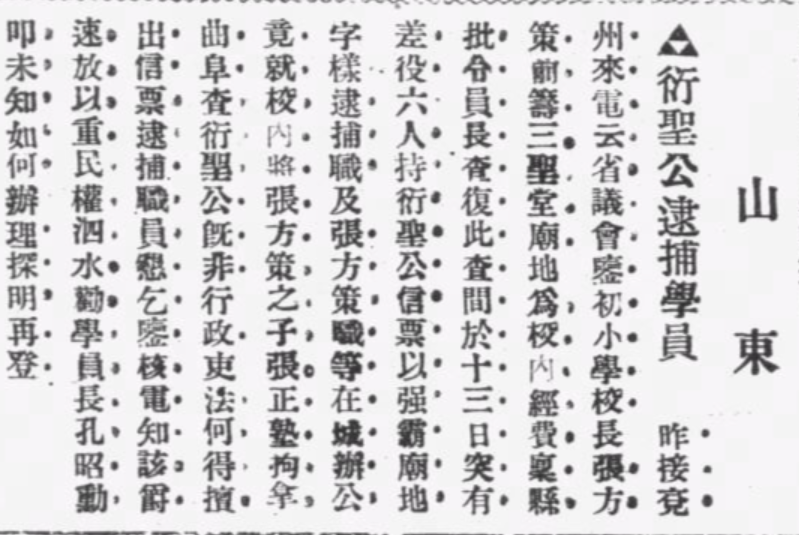 山東
▲衍聖公逮捕學員 昨接兗
州來電云省議會鑒初小學校長張方
策前籌三聖堂廟地爲校內經費稟縣
批令員長查復此查間於十三日突有
差役六人持衍聖公信票以强霸廟地
字樣逮捕職及張方策職等在城辦公
竟就校內將張方策之子張正塾拘拿
曲阜查衍聖公旣非行政吏法何得擅
出信票逮捕職員懇乞鑒核電知該爵
速放以重民權泗水勸學員長孔昭勳
叩未知如何辦理探明再登